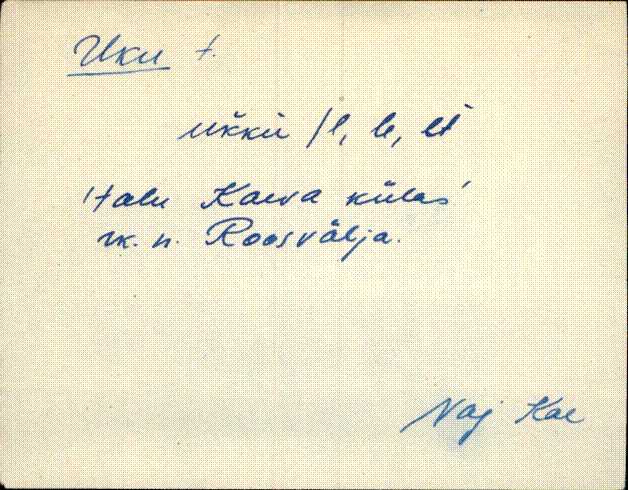 Uku t.
ukku /l, le, lt
talu Kaeva külas
rk. n. Roosvälja.
Noj Kae